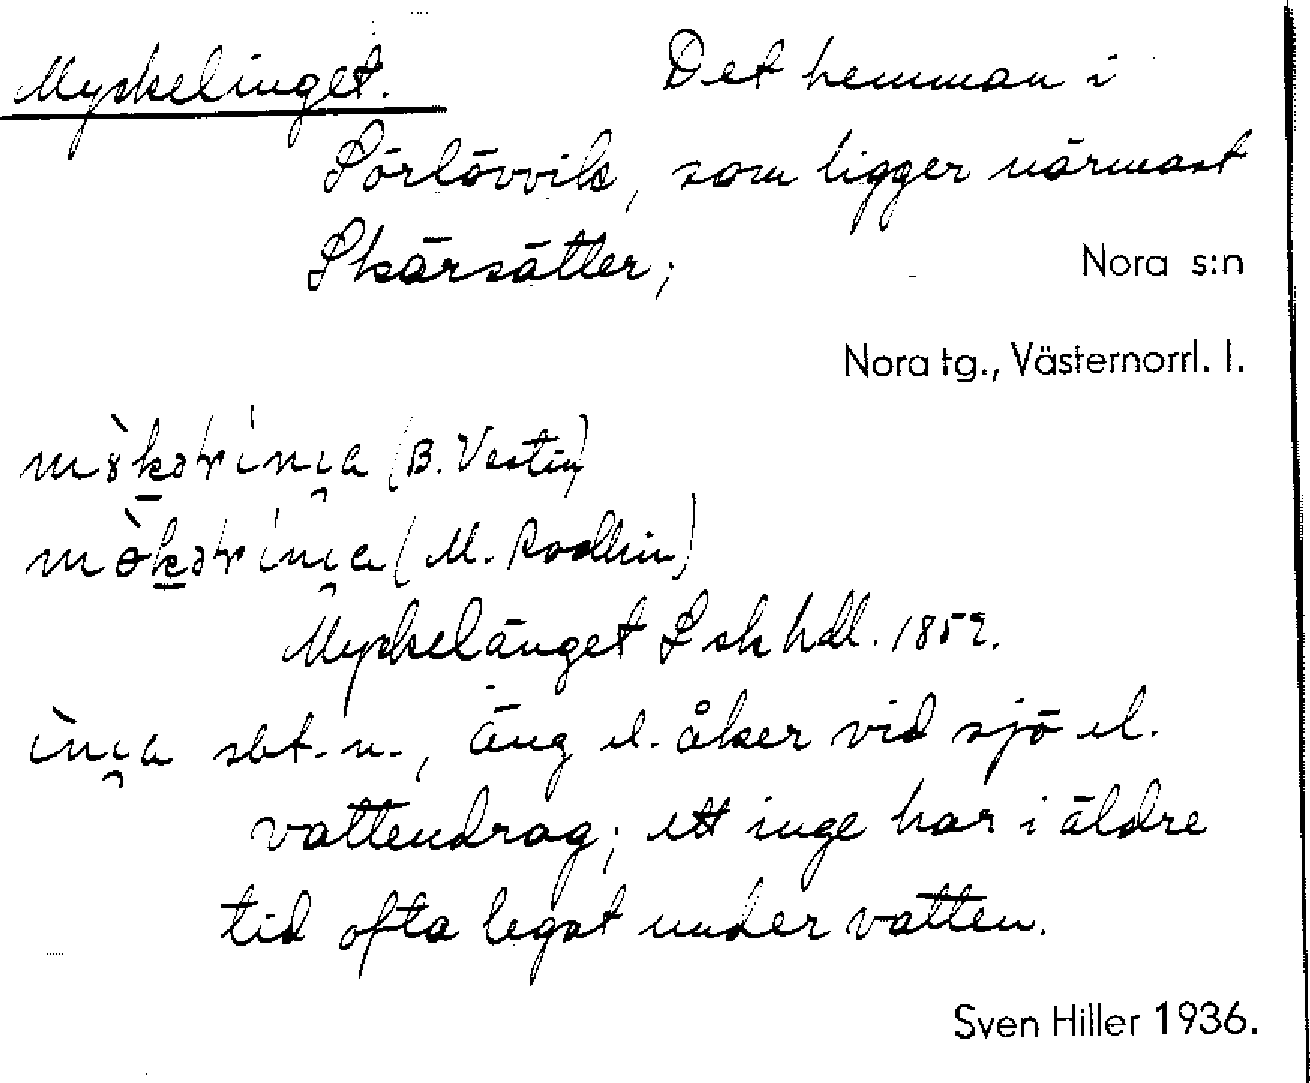 Myskelinget. Det hemman i
Sörlövvik, som ligger närmast
Skärsätter; Nora s:n
Nora tg., Västernorrl. l.
(B. Vestin)
(M. Rodhin)
Myskelänget Lskhdl. 1859.
sbt. n., äng el. åker vid sjö el.
vattendrag; ett inge har i äldre
tid ofta legat under vatten.
Sven Hiller 1936.